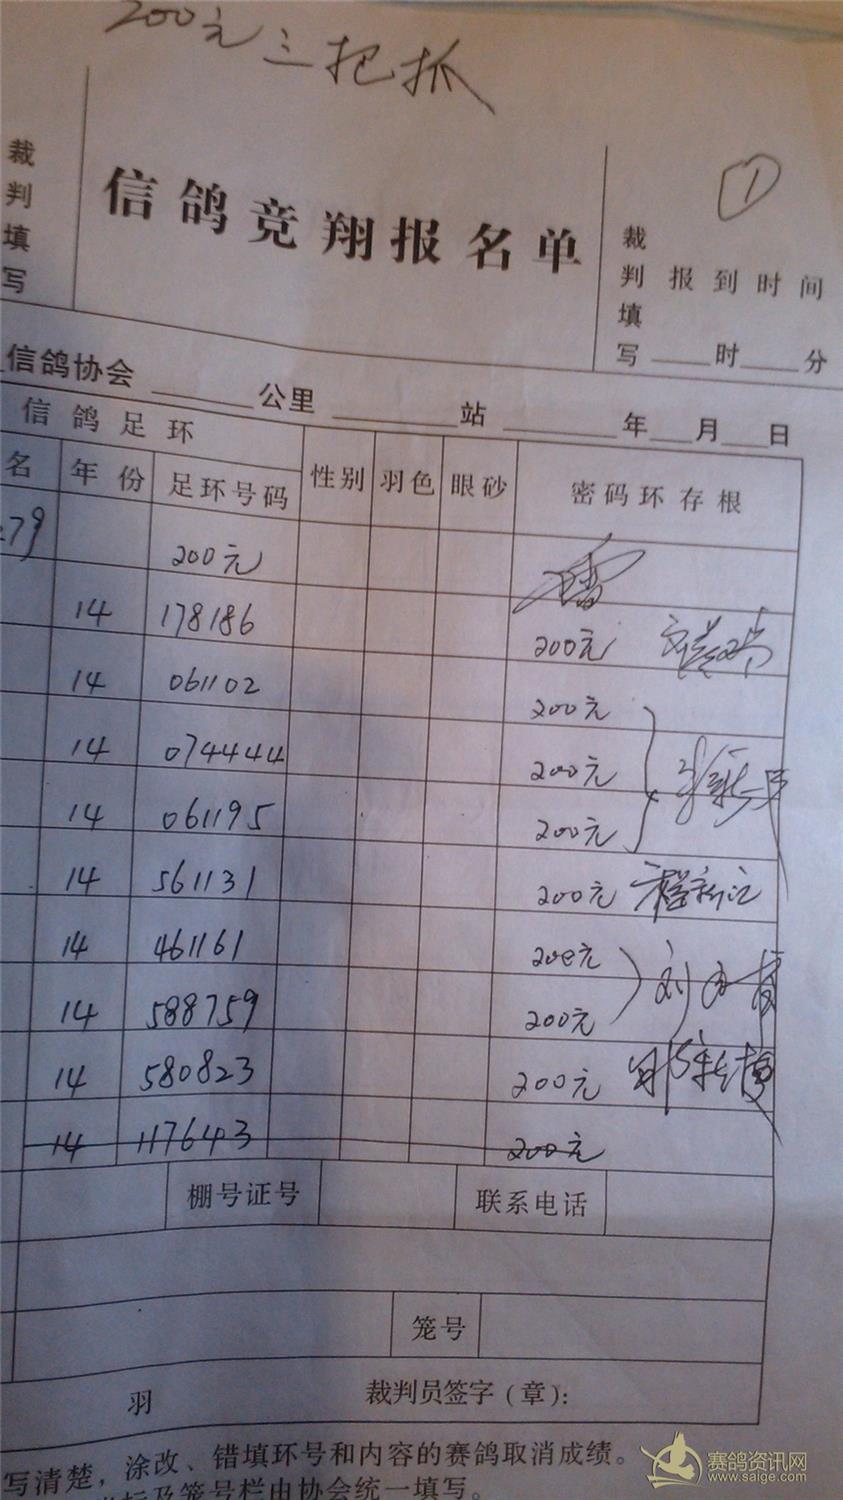 200元 三把抓
裁判填写
信鸽竞翔报名单
①
裁判填写
报到时间
时 分
信鸽协会 公里 站 年 月 日
信鸽足环
名 年份 足环号码 性别 羽色 眼砂 密码环存根
79 200元
14 178186 200元
14 061102 200元
14 074444 200元
14 061195 200元
14 561131 200元
14 461161 200元
14 588759 200元
14 580823 200元
14 117643 200元
棚号证号 联系电话
笼号
羽 裁判员签字(章):
写清楚，涂改、错填环号和内容的赛鸽取消成绩。
标及笼号栏由协会统一填写。
赛鸽资讯网
www.saige.com